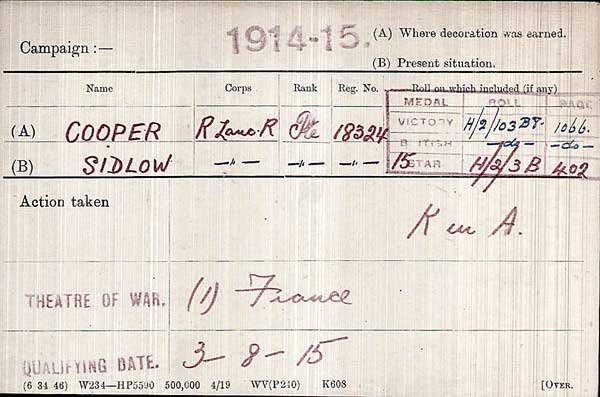 Campaign :— 1914-15. (A) Where decoration was earned.
(B) Present situation.
Name Corps Rank Reg. No. Roll on which included (if any)
MEDAL ROLL PAGE
(A) COOPER R Lanc. R Pte 18324 VICTORY H/2/103 B8. 1066.
BRITISH -do- -do-
(B) SIDLOW -"- -"- -"- 15 STAR H/2/3 B 402
Action taken
K in A.
THEATRE OF WAR. (1) France
QUALIFYING DATE. 3-8-15
(6 34 46) W234—HP5590 500,000 4/19 WV(P240) K608 [OVER.